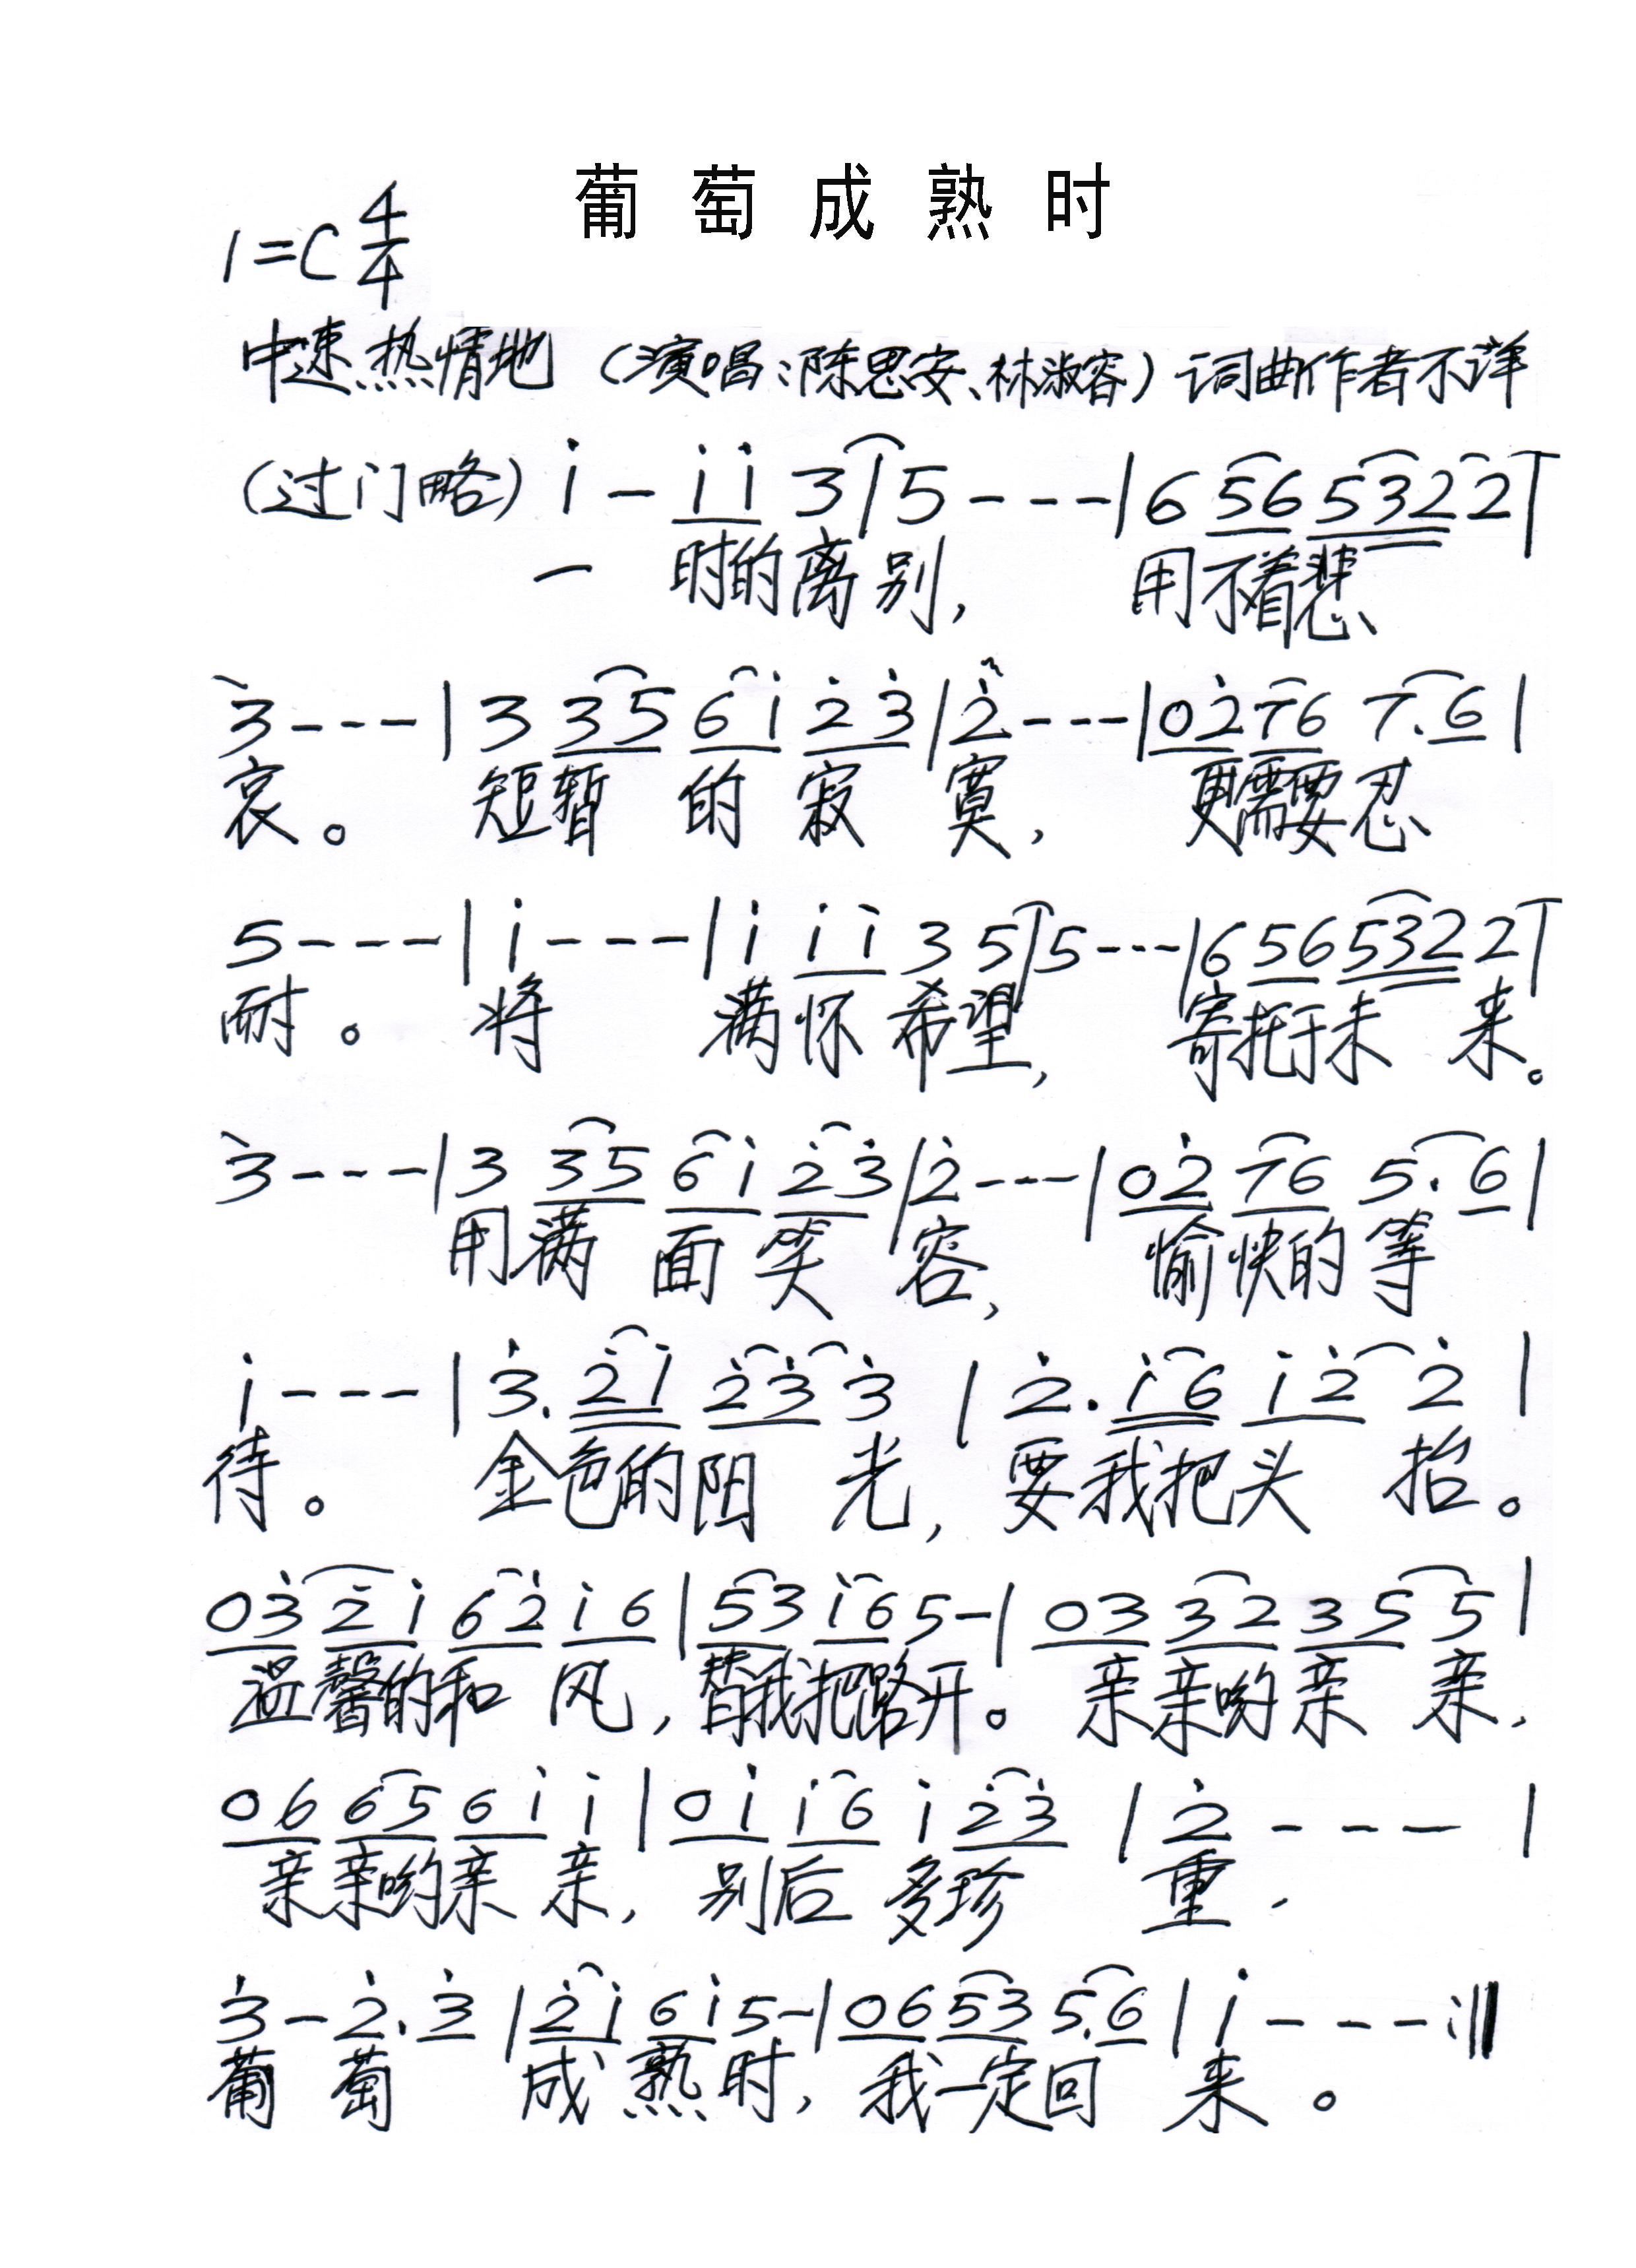 葡萄成熟时
1=C 4/4
中速热情地 (演唱:陈思安、林淑容) 词曲作者不详
(过门略) i̇ - i̇ i̇ 3 | 5 - - - | 6 56 532 2 |
一 时的离别, 用不着悲
3 - - - | 3 35 6i̇ 2̇3̇ | 2̇ - - - | 02̇ 76 7. 6 |
哀。 短暂 的 寂 寞, 更需要忍
5 - - - | i̇ - - - | i̇ i̇ i̇ 3 5 | 5 - - - | 6 56 532 2 |
耐。 将 满怀希望, 寄托于未 来。
3 - - - | 3 35 6i̇ 2̇3̇ | 2̇ - - - | 02̇ 76 5. 6 |
用满 面 笑 容, 愉快的等
i̇ - - - | 3̇. 2̇i̇ 2̇3̇ 3̇ | 2̇. i̇6 i̇2̇ 2̇ |
待。 金色的阳 光, 要我把头 抬。
03̇ 2̇i̇ 62̇ i̇6 | 53 i̇6 5 - | 03 32 35 5 |
温馨的和 风, 替我把路开。 亲亲哟亲 亲,
06 65 6i̇ i̇ | 0i̇ i̇6 i̇ 2̇3̇ | 2̇ - - - |
亲亲哟亲 亲, 别后 多珍 重,
3̇ - 2̇. 3̇ | 2̇i̇ 6i̇ 5 - | 06 53 5. 6 | i̇ - - - :||
葡 萄 成 熟 时, 我一定回 来。